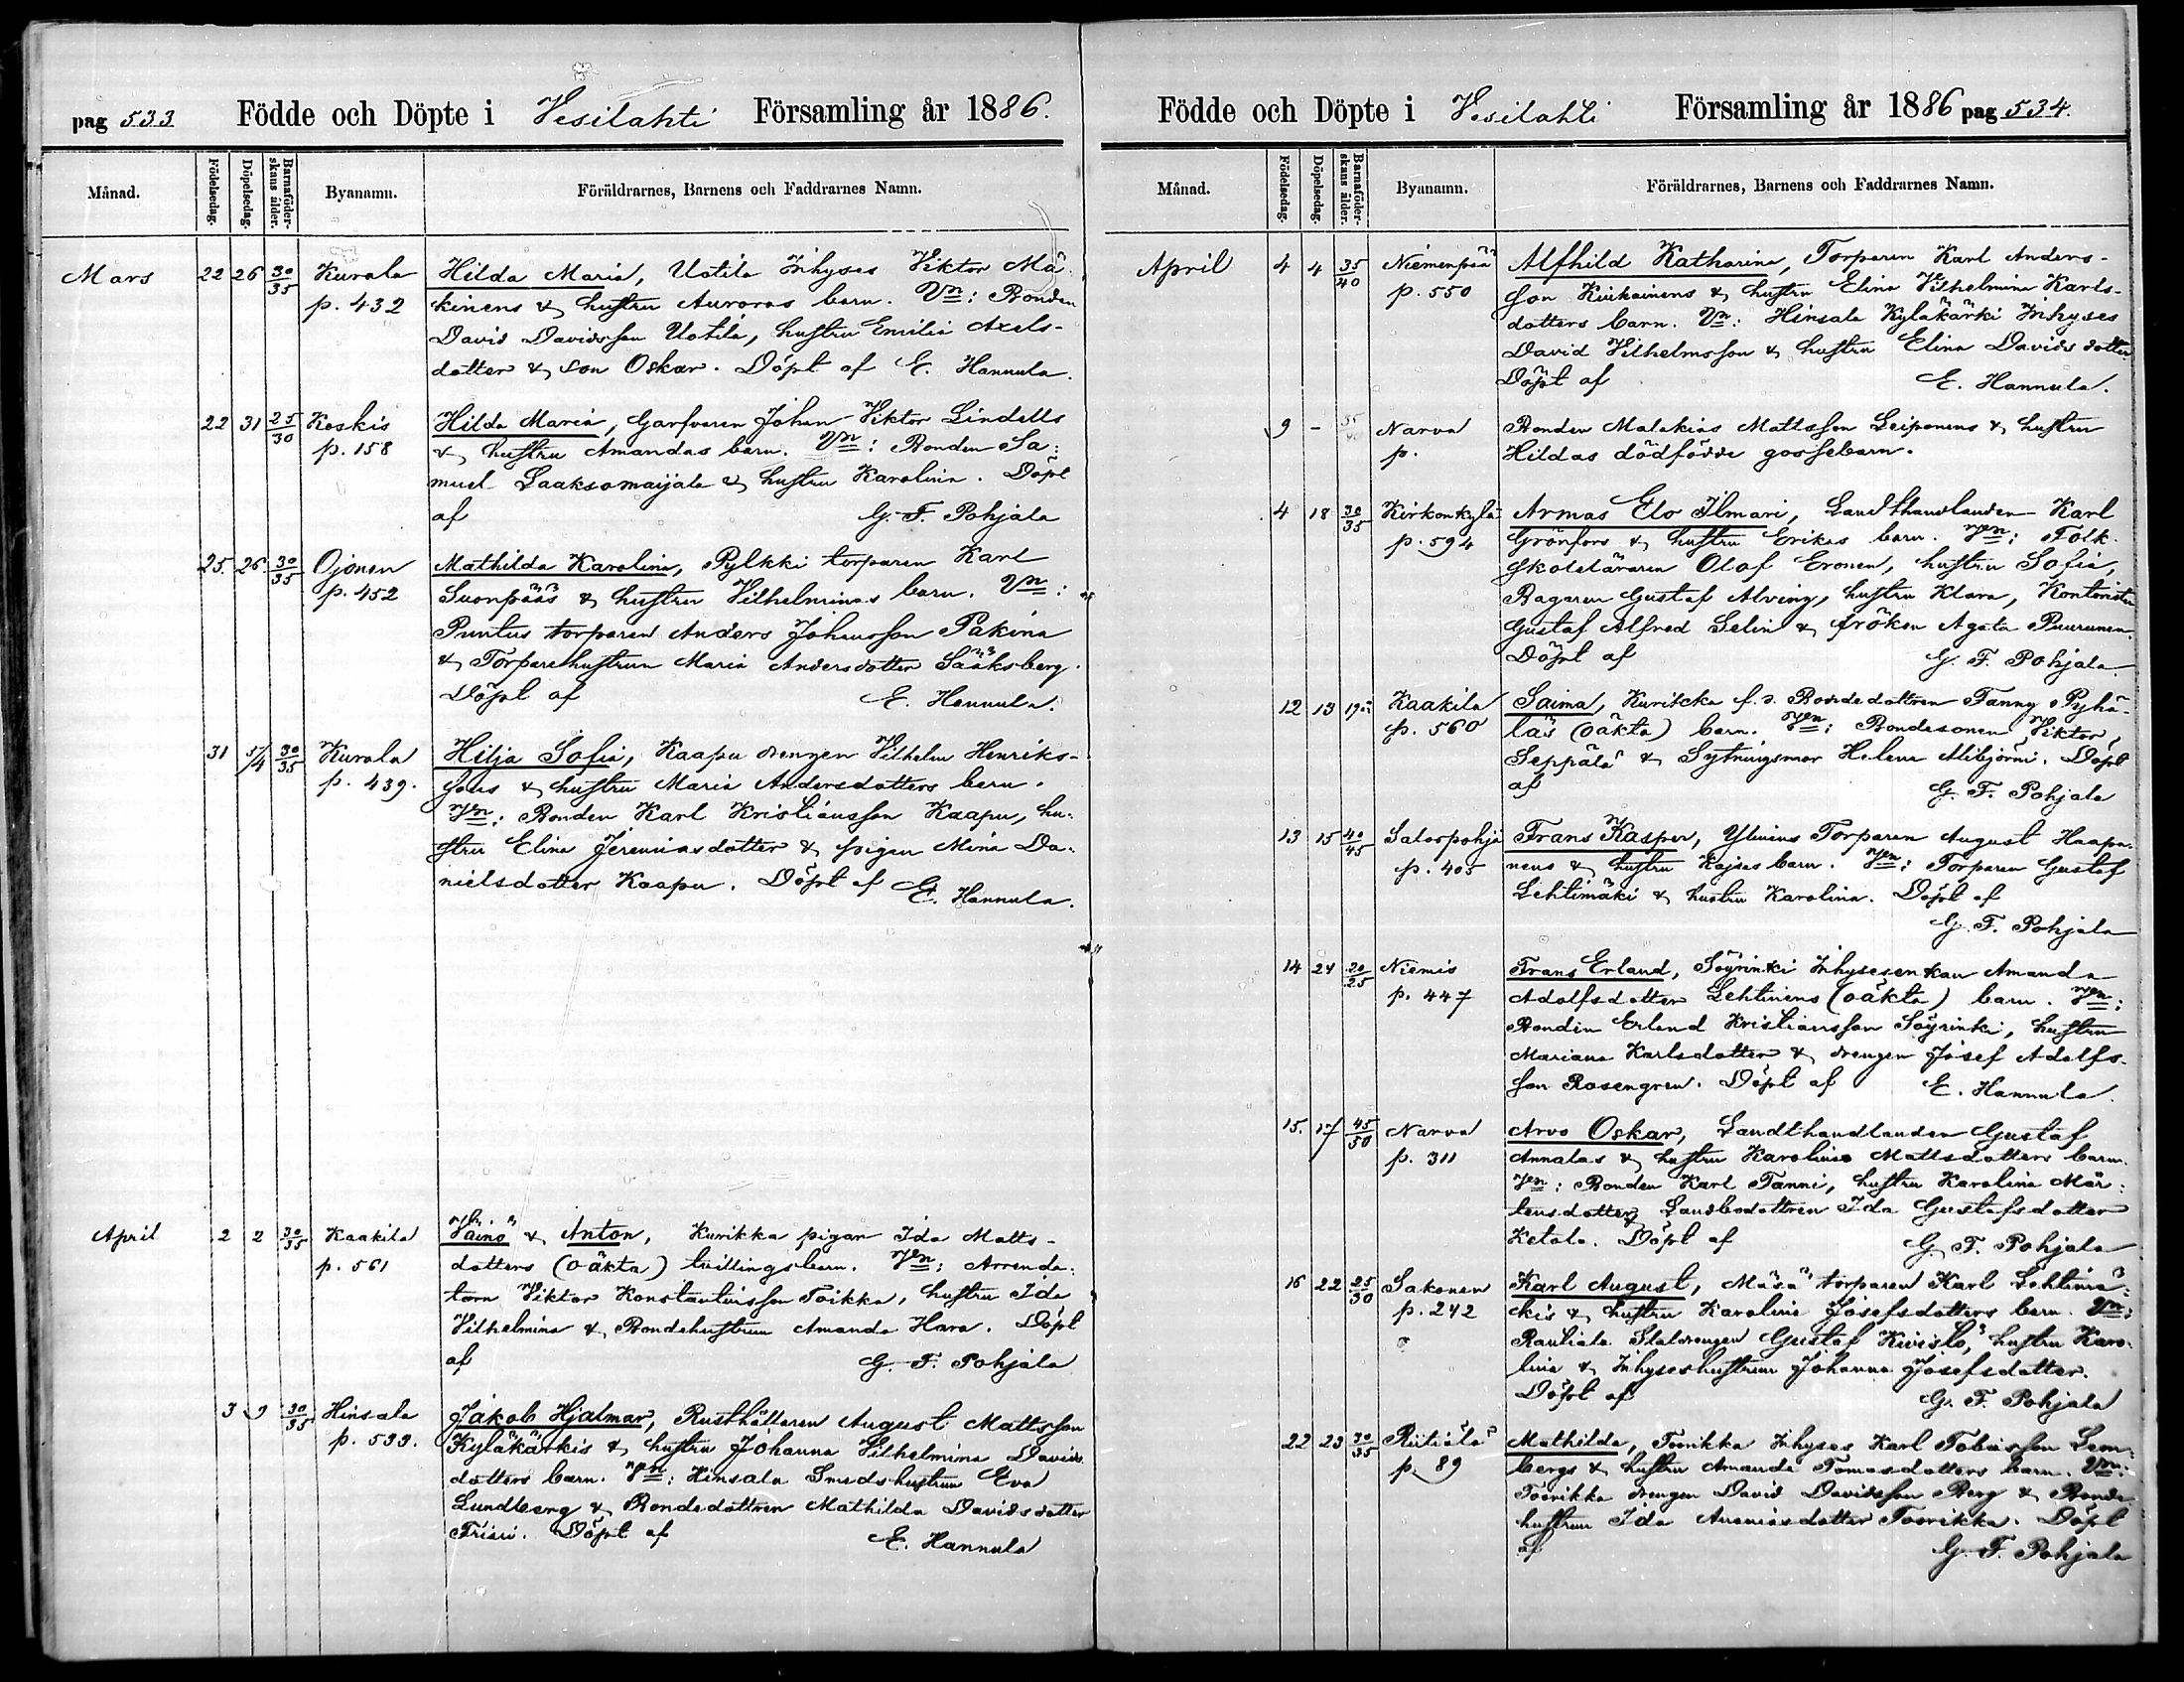 pag 533 Födde och Döpte i Vesilahti Församling år 1886.
Månad. Födelsedag. Döpelsedag. Barnaföderskans ålder. Byanamn. Föräldrarnes, Barnens och Faddrarnes Namn.
Mars 22 26 30/35 Kurala Hilda Maria, Uotila Inhyses Viktor Mä-
p. 432 kinens & hustru Auroras barn. Vn: Bonden
David Davidsson Uotila, hustru Emilia Axels-
dotter & son Oskar. Döpt af E. Hannula.
22 31 25/30 Koskis Hilda Maria, Garfvaren Johan Viktor Lindells
p. 158 & hustru Amandas barn. Vn: Bonden Sa:
muel Laaksomaijala & hustru Karolina. Döpt
af G. F. Pohjala
25. 26. 30/35 Ojonen Mathilda Karolina, Pylkki torparen Karl
p. 452 Suonpääs & hustru Vilhelminas barn. Vn:
Puntus torparen Anders Johansson Pakina
& Torparehustrun Maria Andersdotter Sääksberg.
Döpt af E. Hannula.
31 5/4 30/35 Kurala Hilja Sofia, Kaapu drengen Vilhelm Henriks-
p. 439. sons & hustru Maria Andersdotters barn.
Vn: Bonden Karl Kristiansson Kaapu, hu-
stru Elina Jeremiasdotter & pigan Mina Da-
nielsdotter Kaapu. Döpt af E. Hannula.
April 2 2 30/35 Kaakila Väinö & Anton, Kurikka pigan Ida Matts-
p. 561 dotters (oäkta) tvillingsbarn. Vn: Arrenda-
torn Viktor Konstantinsson Toikka, hustru Ida
Vilhelmina & Bondehustrun Amanda Hara. Döpt
af G. F. Pohjala
3 9 30/35 Hinsala Jakob Hjalmar, Rusthållaren August Mattsson
p. 533. Kyläkärkis & hustru Johanna Vilhelmina Davids
dotters barn. Vn: Hinsala Smedshustrun Eva
Lundberg & Bondedottren Mathilda Davidsdotter
Döpt af E. Hannula
Födde och Döpte i Vesilahti Församling år 1886 pag 534.
Månad. Födelsedag. Döpelsedag. Barnaföderskans ålder. Byanamn. Föräldrarnes, Barnens och Faddrarnes Namn.
April 4 4 35/40 Niemenpää Alfhild Katharina, Torparen Karl Anders-
p. 550 son Kiukainens & hustru Elina Vilhelmina Karls-
dotters barn. Vn: Hinsala Kyläkärki Inhyses
David Vilhelmsson & hustru Elina Davidsdotter
Döpt af E. Hannula.
9 - 35/40 Narva Bonden Malakias Mattsson Leiponens & hustru
p. Hildas dödfödde gossebarn.
4 18 30/35 Kirkonkylä Armas Elo Ilmari, Landthandlanden Karl
p. 594 Grönfors & hustru Erikas barn. Vn: Folk-
skoleläraren Olof Eronen, hustru Sofia,
Bagaren Gustaf Alving, hustru Klara, Kontoristen
Gustaf Alfred Selin & fröken Agata Puurunen.
Döpt af G. F. Pohjala
12 13 19 Kaakila Saima, f.d. Bondedottren Fanny Pyhä-
p. 560 läs (oäkta) barn. Vn: Bondesonen Viktor
Seppälä & Sytningsmor Helena Alibjörni. Döpt
af G. F. Pohjala
13 15 40/45 Salospohja Frans Kasper, Torparen August Haapa-
p. 405 nens & hustru Kajsas barn. Vn: Torparen Gustaf
Lehtimäki & hustru Karolina. Döpt af
G. F. Pohjala
14 24 20/25 Niemis Frans Erland, Söyrinki Inhysesenkan Amanda
p. 447 Adolfsdotter Lehtinens (oäkta) barn. Vn:
Bonden Erland Kristiansson Söyrinki, hustru
Mariana Karlsdotter & drengen Josef Adolfs-
son Rosengren. Döpt af E. Hannula.
15. 17 45/50 Narva Arvo Oskar, Landthandlanden Gustaf
p. 311 Annalas & hustru Karolina Mattsdotters barn.
Vn: Bonden Karl Tanni, hustru Karolina Mår-
tensdotter & Landbodottren Ida Gustafsdotter
Ketola. Döpt af G. F. Pohjala
16 22 25/30 Sakonen Karl August, Mäsä torparen Karl Lehtimä-
p. 242 kis & hustru Karolina Josefsdotters barn. Vn:
Rautiala Staldrengen Gustaf Kivistö, hustru Karo-
lina & Inhyseshustrun Johanna Josefsdotter.
Döpt af G. F. Pohjala
22 23 30/35 Riitiälä Mathilda, Toorikka Inhyses Karl Tobiasson Lem-
p. 89 bergs & hustru Amanda Tomasdotters barn. Vn:
Toorikka drengen David Davidsson Berg & Bonde-
hustrun Ida Ananiasdotter Toorikka. Döpt
af G. F. Pohjala